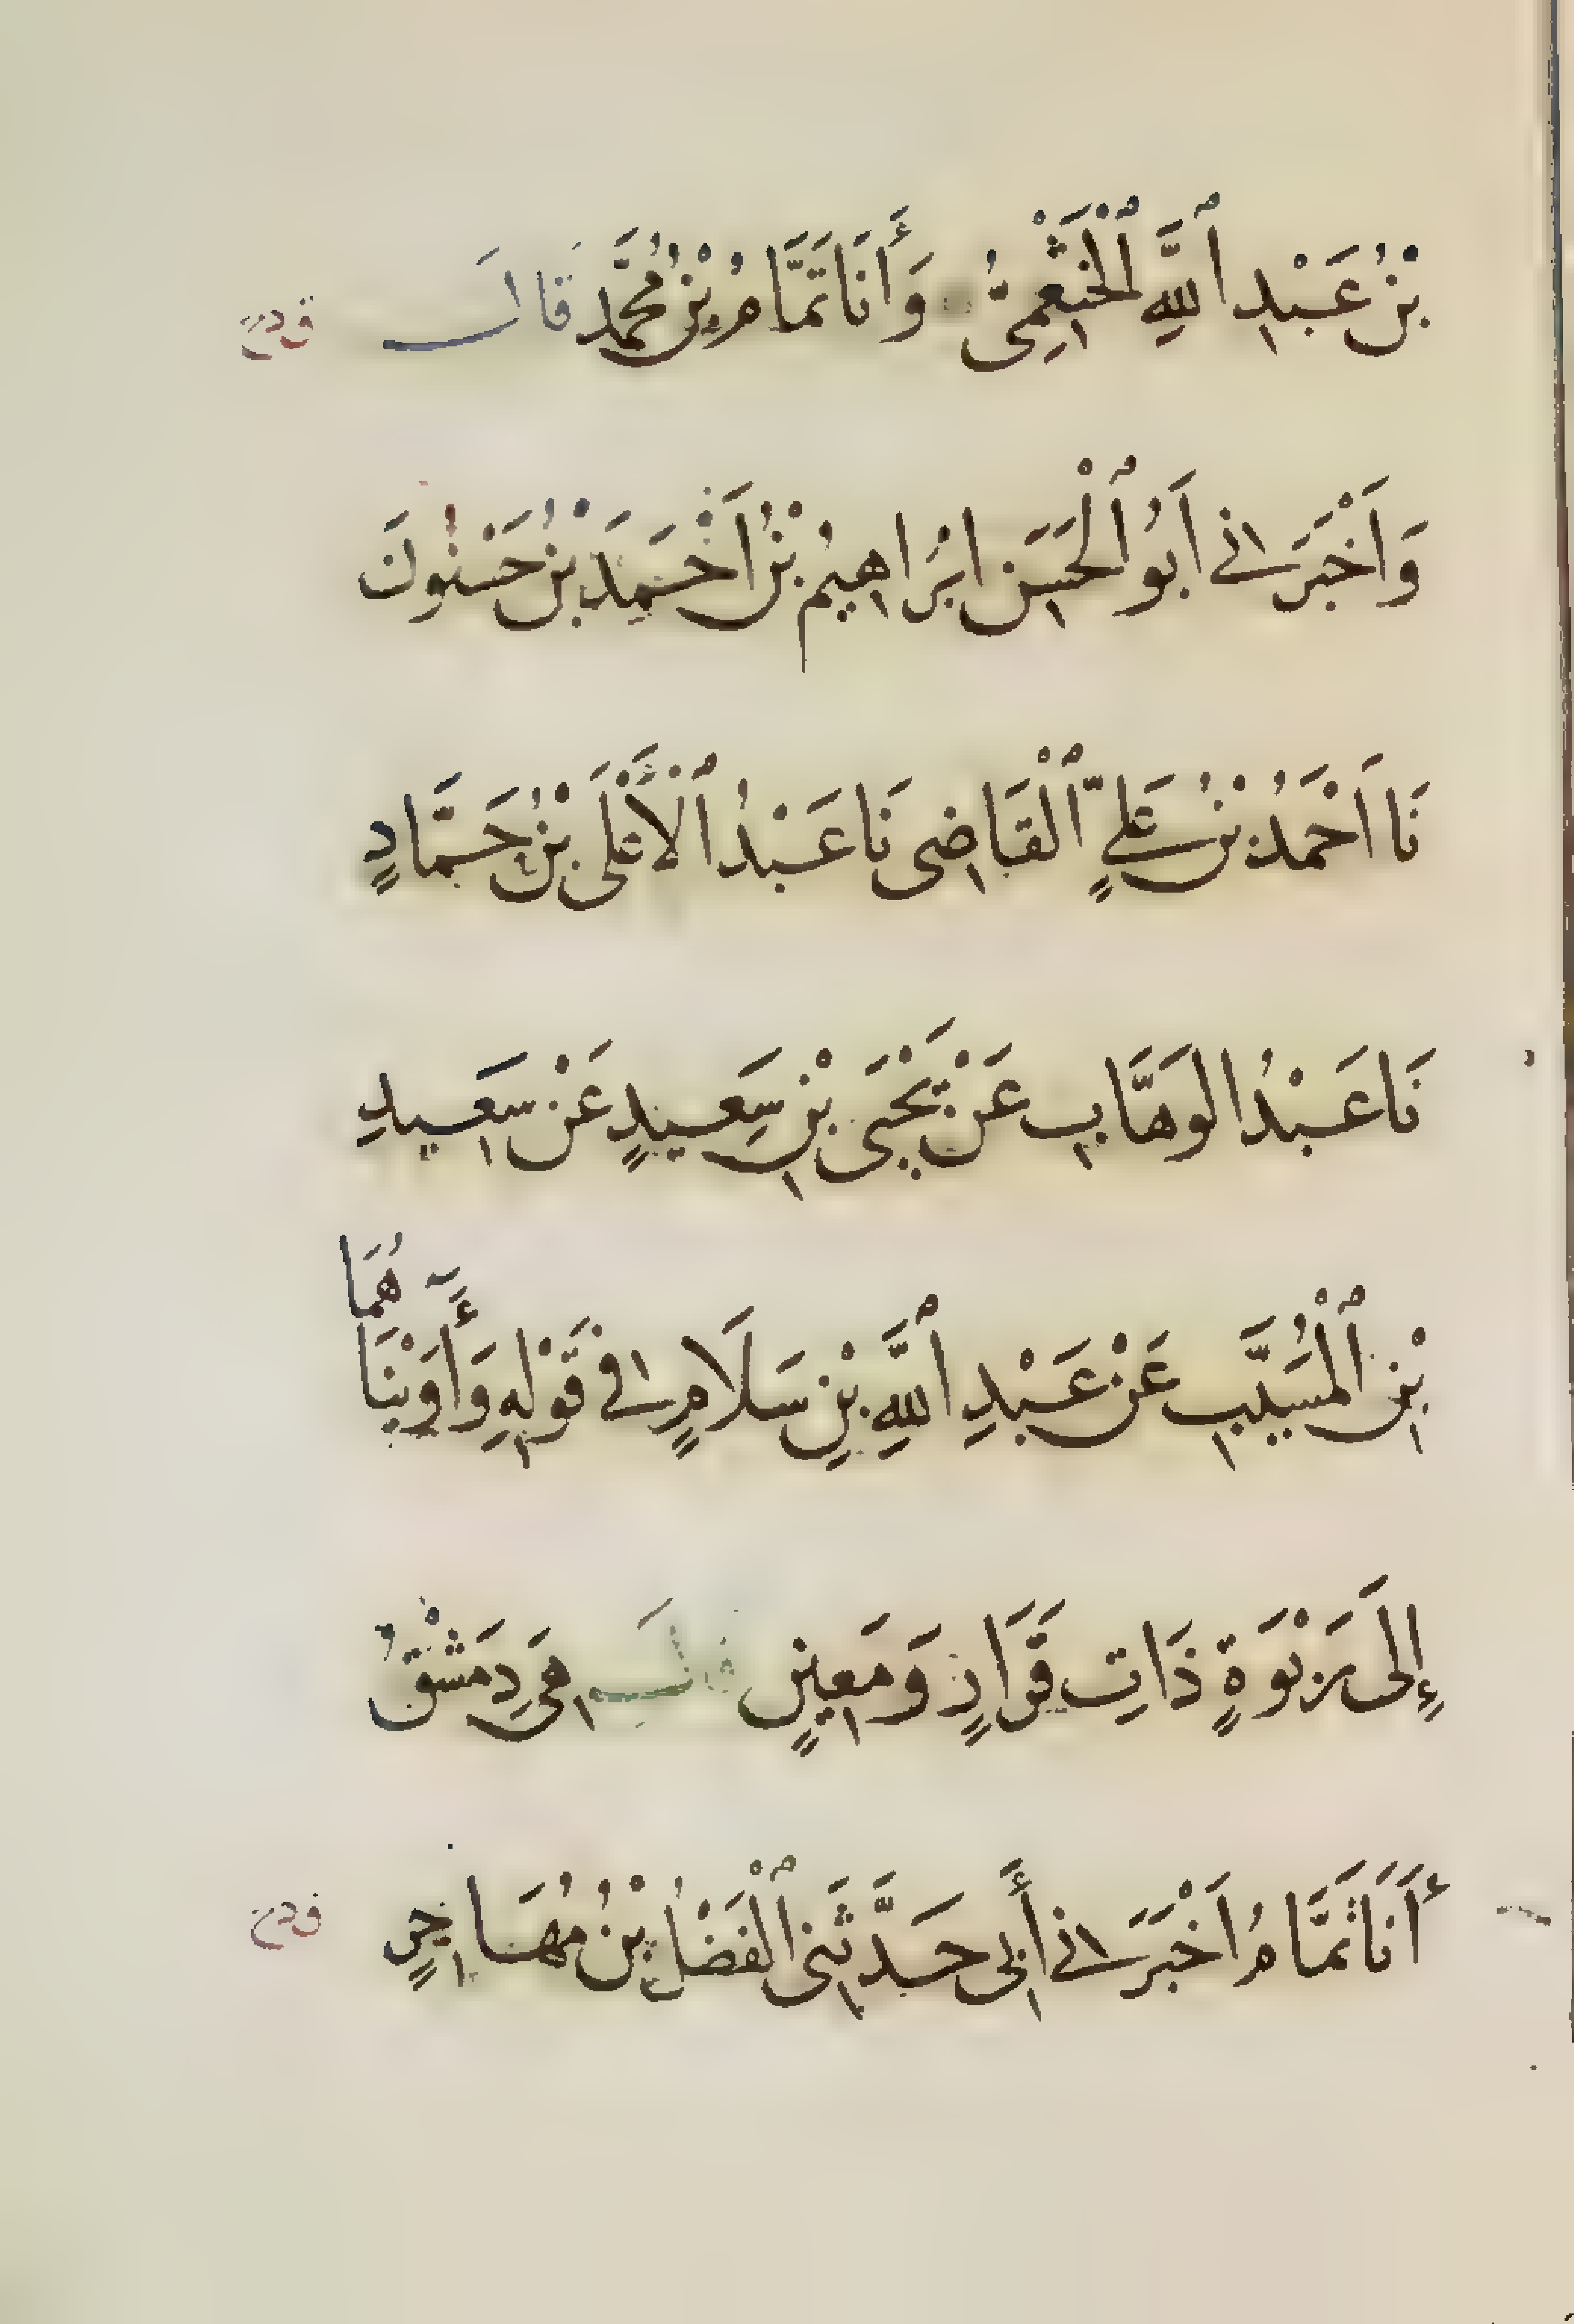 بْنُ عَبْدِ ٱللَّهِ ٱلْخَثْعَمِىُّ وَأَنَا تَمَّامُ بْنُ مُحَمَّد قَالَ
وَاَخْبَرَنِى اَبُو ٱلْحَسَنِ ابْرَاهِيمُ بْنُ اَحْمَدَ بْنُ حَسْنُونَ
نَا اَحْمَدُ بْنُ عَلِىٍّ ٱلْقَاضِى نَا عَبْدُ ٱلْأَعْلَى بْنُ حَمَّادٍ
نَا عَبْدُ الوَهَّابِ عَنْ يَحْيَى بْنِ سَعِيدٍ عَنْ سَعِيدِ
بْنِ ٱلْمُسَيَّبِ عَنْ عَبْدِ ٱللَّهِ بْنِ سَلَامٍ فِى قَوْلِهِ وَأَٓوَيْنَاهُمَا
إِلَى رَبْوَةٍ ذَاتِ قَرَارٍ وَمَعِينٍ قَالَ هِىَ دِمَشْقُ
أَنَا تَمَّامُ اَخْبَرَنِى أَبِى حَدَّثَنِى ٱلْفَضْلُ بْنُ مُهَاجِرٍ